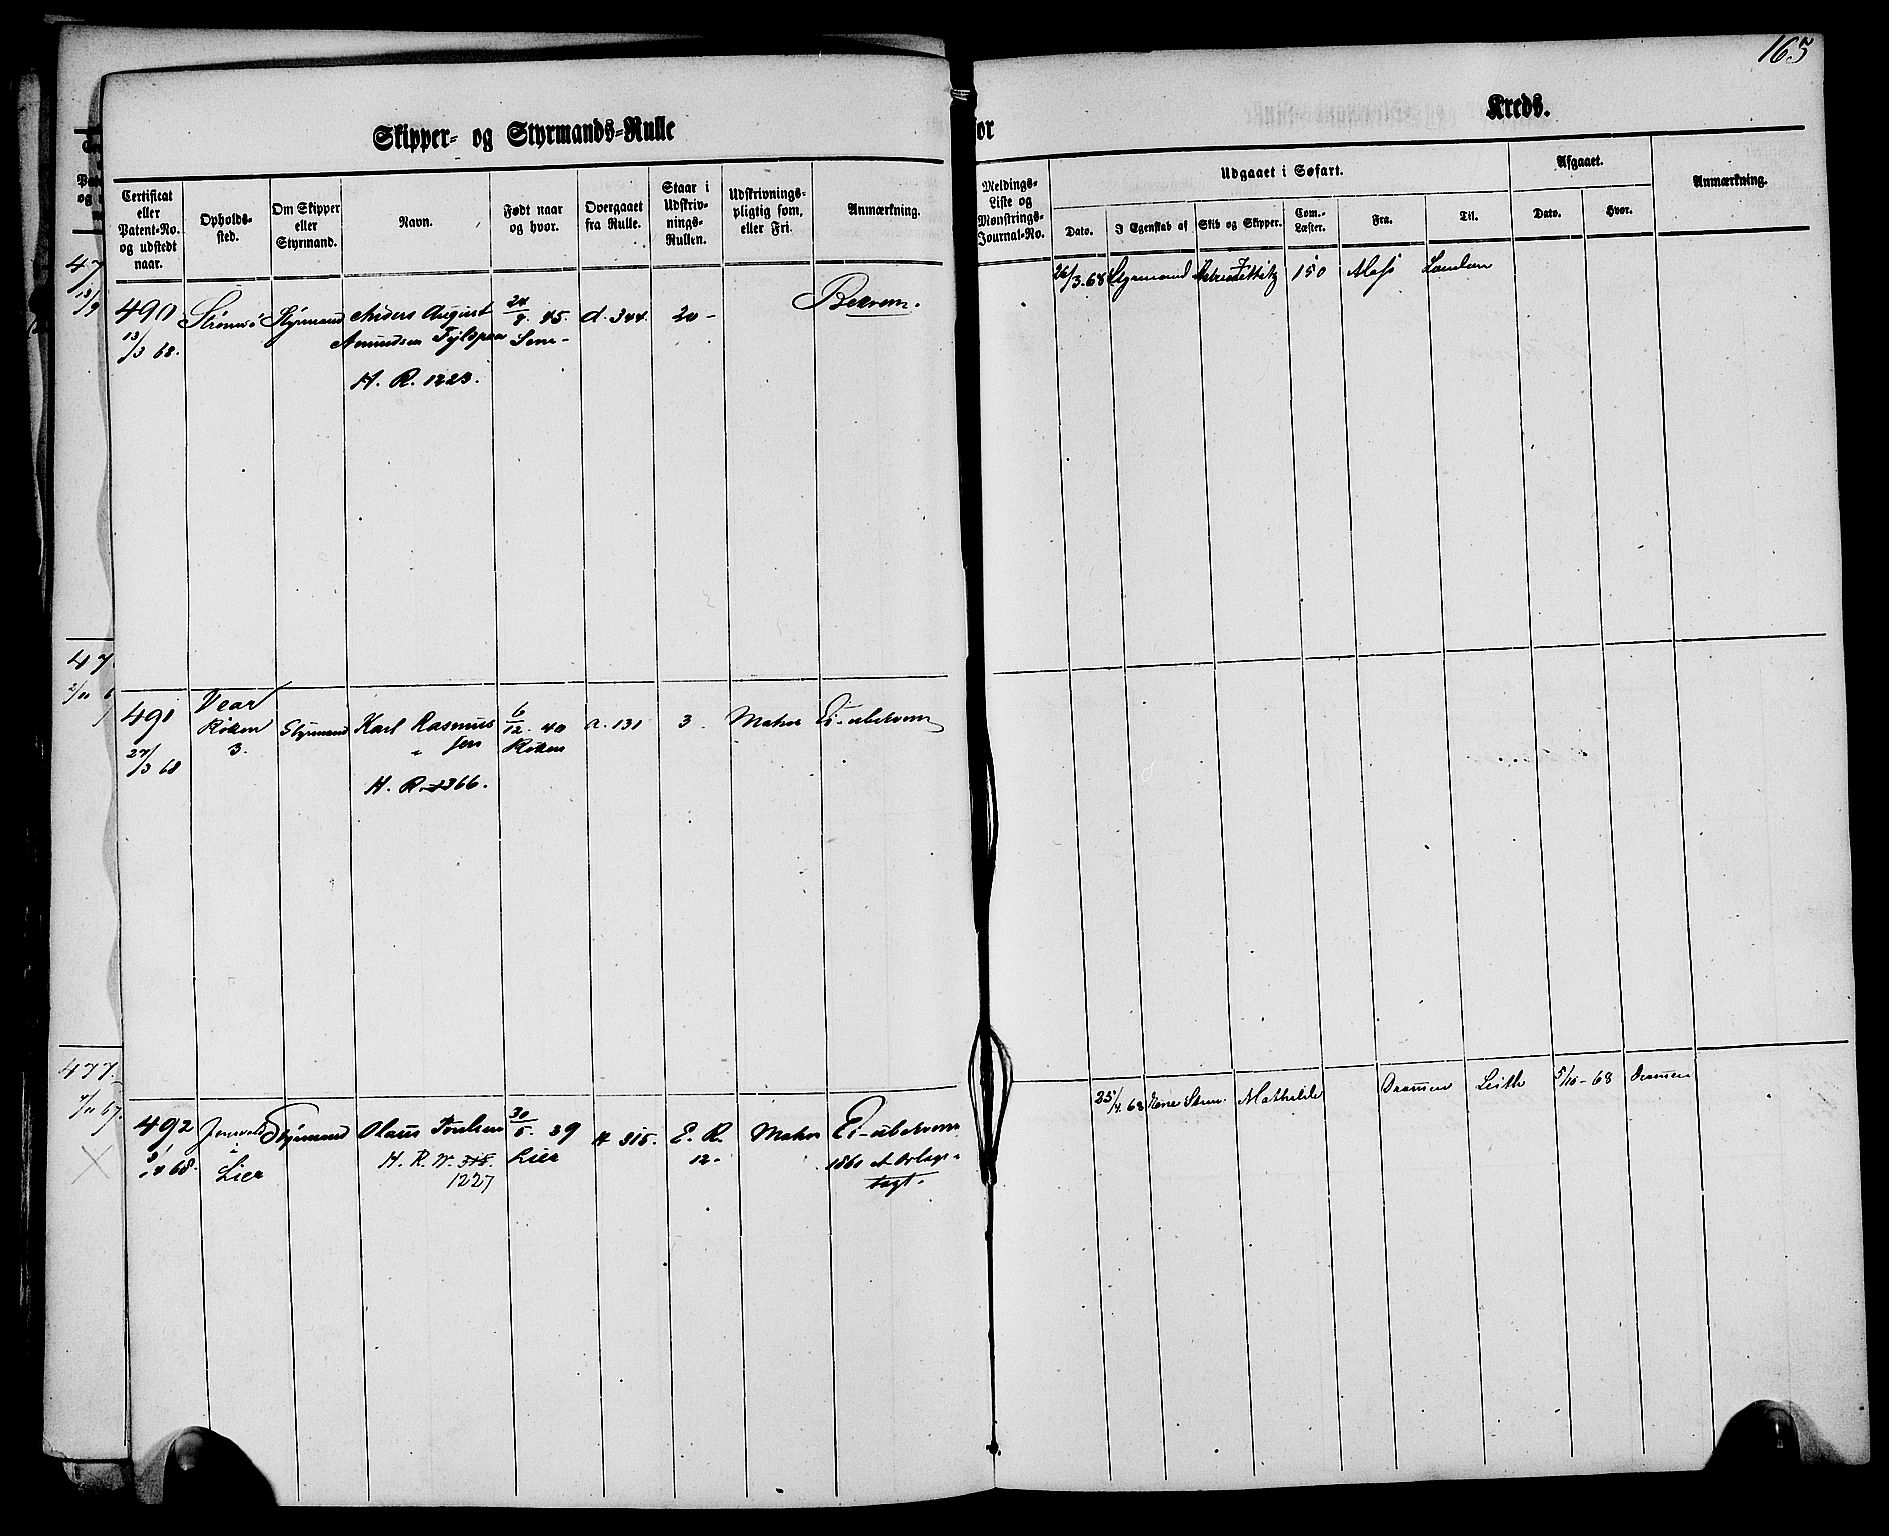 165
Skipper- og Styrmands-Rulle
for
Kreds.
Certificat eller Patent-No. og udstedt naar.
Opholds-sted.
Om Skipper eller Styrmand.
Navn.
Født naar og hvor.
Overgaaet fra Rulle.
Staar i Udskriv-nings-Rullen.
Udskrivnings-pligtig som, eller Fri.
Anmærkning.
Meldings-Liste og Mønstrings-Journal-No.
Udgaaet i Søfart.
Dato.
I Egenskab af
Skib og Skipper.
Com.-Læster.
Fra.
Til.
Afgaaet.
Dato.
Hvor.
Anmærkning.
490
13/3 68.
Strømsø
Styrmand
Anders August
Amundsen
H. R. 1223.
24/8. 45.
d. 344.
20-
Bekvem.
26/3. 68
Styrmand
150
Moss
London
491
27/3 68
Vear
Røken
3.
Styrmand
Karl Rasmus
sen
H. R. 1366.
6/12. 40
Røken
a. 131
3.
Matros
Ei-ubekvem
492
3/4 68.
Lier
Styrmand
Olaus Paulsen
H. R. N. 315.
1227
30/5. 39
Lier
315.
E. R.
12.
Matros
Ei-ubekvem
1861 et Orlogs-
togt.
25/4. 68
Mathilde
Drammen
Leith
5/10-68
Drammen
477.